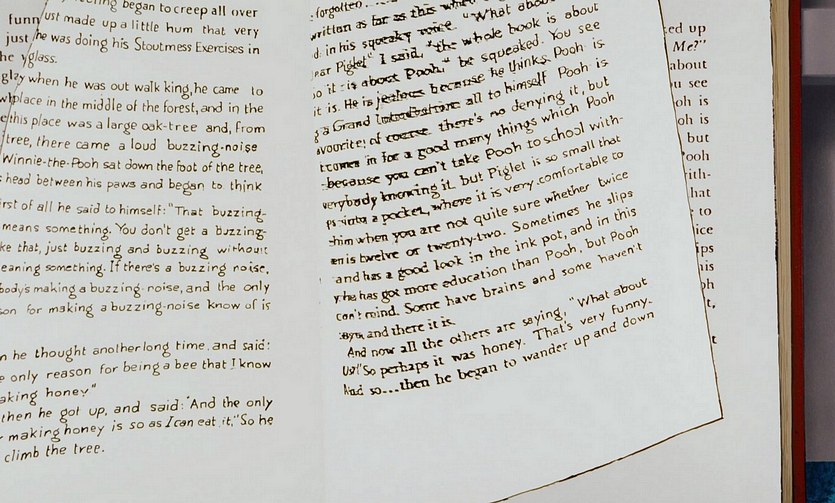 ing began to creep all over
funn ust made up a little hum that very
just he was doing his Stoutness Exercises in
he yglass.
glay when he was out walk king, he came to
place in the middle of the forest, and in the
this place was a large oak-tree and, from
tree, there came a loud buzzing-noise
Winnie-the-Pooh sat down the foot of the tree,
head between his paws and began to think
irst of all he said to himself: "That buzzing-
means something. You don't get a buzzing-
ke that, just buzzing and buzzing without
eaning something. If there's a buzzing noise,
body's making a buzzing-noise, and the only
son for making a buzzing-noise know of is
n he thought another long time, and said:
e only reason for being a bee that I know
aking honey"
then he got up, and said: "And the only
making honey is so as I can eat it." So he
climb the tree.
forgotten...
written as far as this when
d in his squeaky voice. "What about
ear Piglet" I said, "the whole book is about
o it is about Pooh," be squeaked. You see
it is. He is jealous because he thinks Pooh is
g a Grand Introduction all to himself Pooh is
avourite, of course, there's no denying it, but
comes in for a good many things which Pooh
because you can't take Pooh to school with-
verybody knowing it. but Piglet is so small that
ps into a pocket, where it is very comfortable to
him when you are not quite sure whether twice
en is twelve or twenty-two. Sometimes he slips
and has a good look in the ink pot, and in this
y he has got more education than Pooh, but Pooh
can't mind. Some have brains and some haven't
and there it is.
And now all the others are saying, "What about
Us?" So perhaps it was honey. That's very funny-
And so...then he began to wander up and down
ed up
Me?"
about
u see
oh is
oh is
but
ooh
ith-
hat
to
ice
ips
his
oh
t,
t